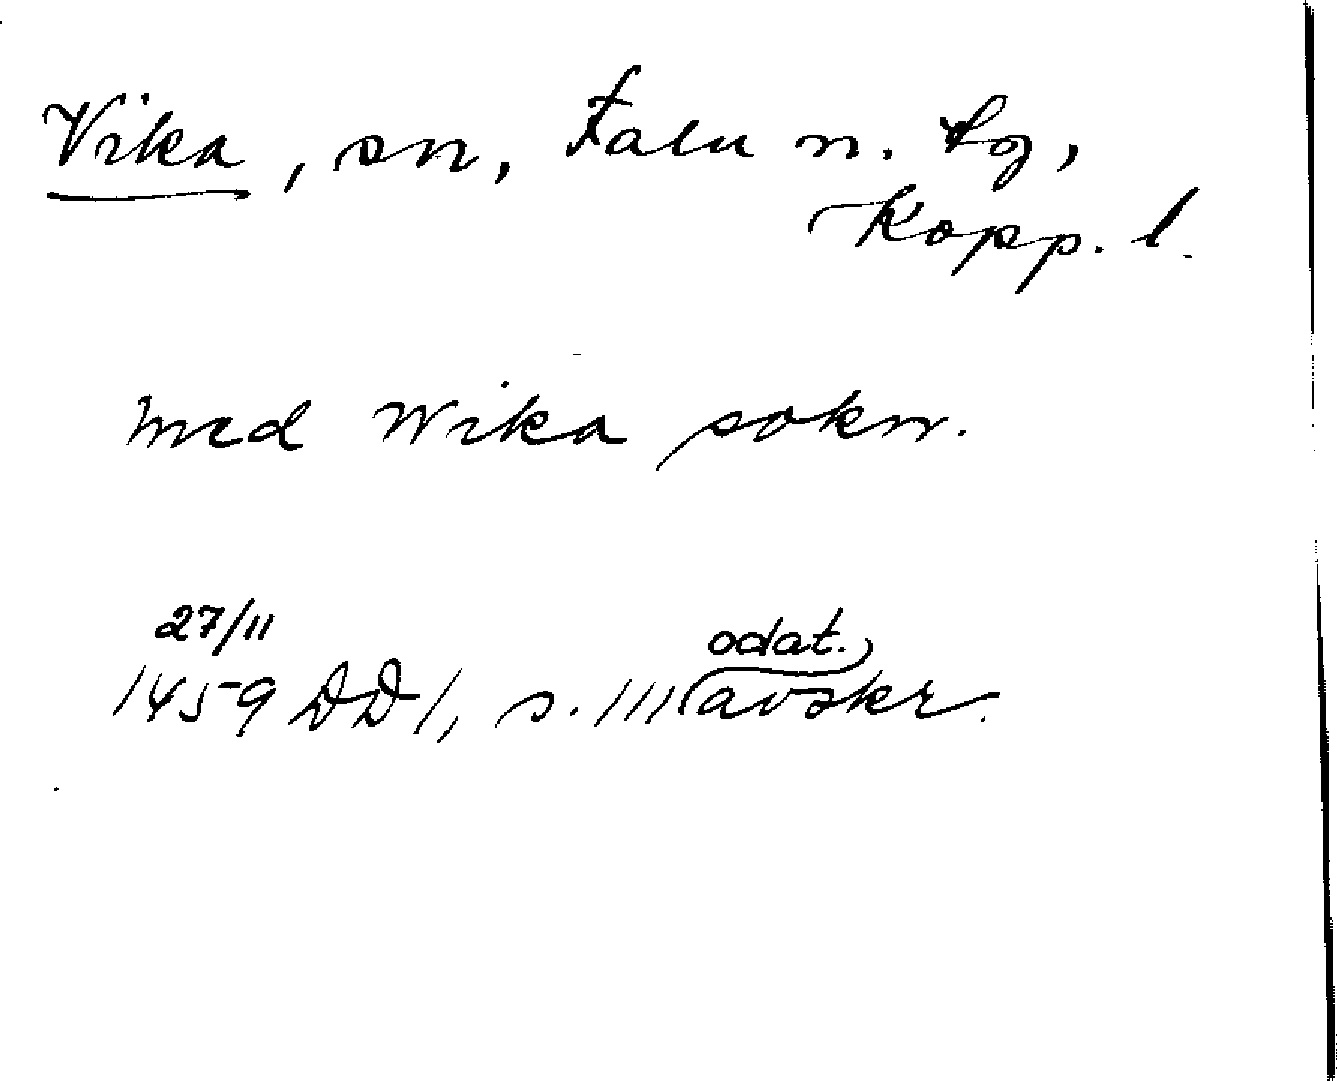 Vika, sn, Falu n. tg,
Kopp. l.
med Wika sokn.
27/11
odat.
1459 DD 1, s. 111 avskr.